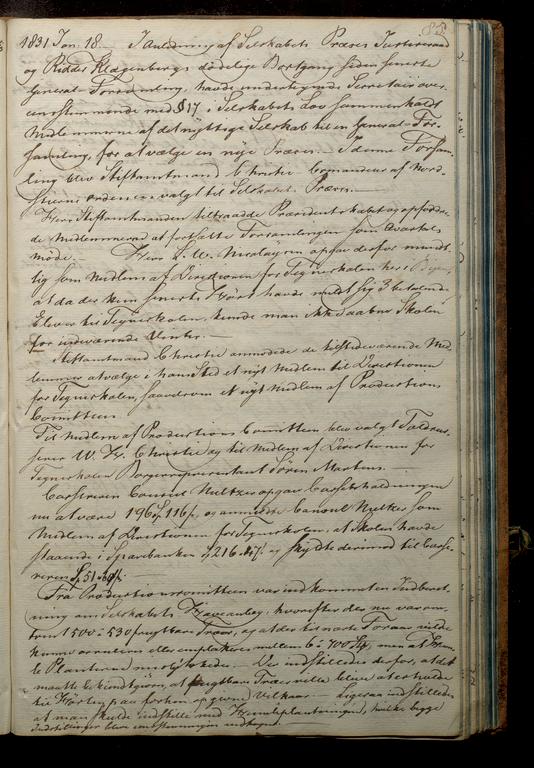 83.
1831 Jan. 18. I Anledning af Selskabets Præses Justitsraad
og Ridder Klagenbergs dødelige Bortgang siden seneste
General-Forsamling, havde undertegnede Secretair over-
eensstemmende med § 17 i Selskabets Lov sammenkaldt
Medlemmerne af det nyttige Selskab til en General-For-
samling, for at vælge en nye Præses. I denne Forsam-
ling blev Stiftamtmand Christie Comandeur af Nord-
stierne ordenen valgt til Selskabets Præses.
Herr Stiftamtmanden tiltraadde Præsidentskabet og opfordre-
de Medlemmerne at fortsætte Forsamlingen som qvartals
møde. Herr S. W. opgav derfor mundt-
lig som Medlem af Directionen for Tegneskolen her i Byen,
at da der kun havde meldt sig 3 betalende
Elever til Tegneskolen, kunde man ikke aabne Skolen
for indeværende Vinter.
Stiftamtmand Christie anmodede de tilstedeværende Med-
lemmer at vælge i hans Sted et nyt Medlem til Directionen
for Tegneskolen, saavelsom et nyt Medlem af Productions
Comitteen.
Til Medlem af Productions Comitteen blev valgt
W. F. K. Christie og til Medlem af Directionen for
Tegneskolen Borgerrepresentant Sören Martens.
Casserer Consul Meltzer opgav Cassebeholdningen
nu at være 196 116 og anmeldte Consul som
Medlem af Directionen for Tegneskolen, at Skolen havde
staaende i Sparebanken 216 og skyldte derimod til Casse-
reren 51
Fra Productionscomitteen var indkommen Indberet-
ning om Selskabets Haveanlæg, hvorefter der nu var om-
trent 1500 à 530 frugtbare Træer, og at der til næste Foraar vilde
kunne oculeres eller omplantes mellem 6 à 700 men at
Planterne mislykkedes. Der indstilledes derfor, at det
maatte bekiendtgiøres, at frugtbare Træer ville blive at erholde
til Høsten paa forhen opgivne Vilkaar. Ligesaa indstilledes
at man skulde indstille med Humleplantningen, hvilke begge
Indstillinger bleve